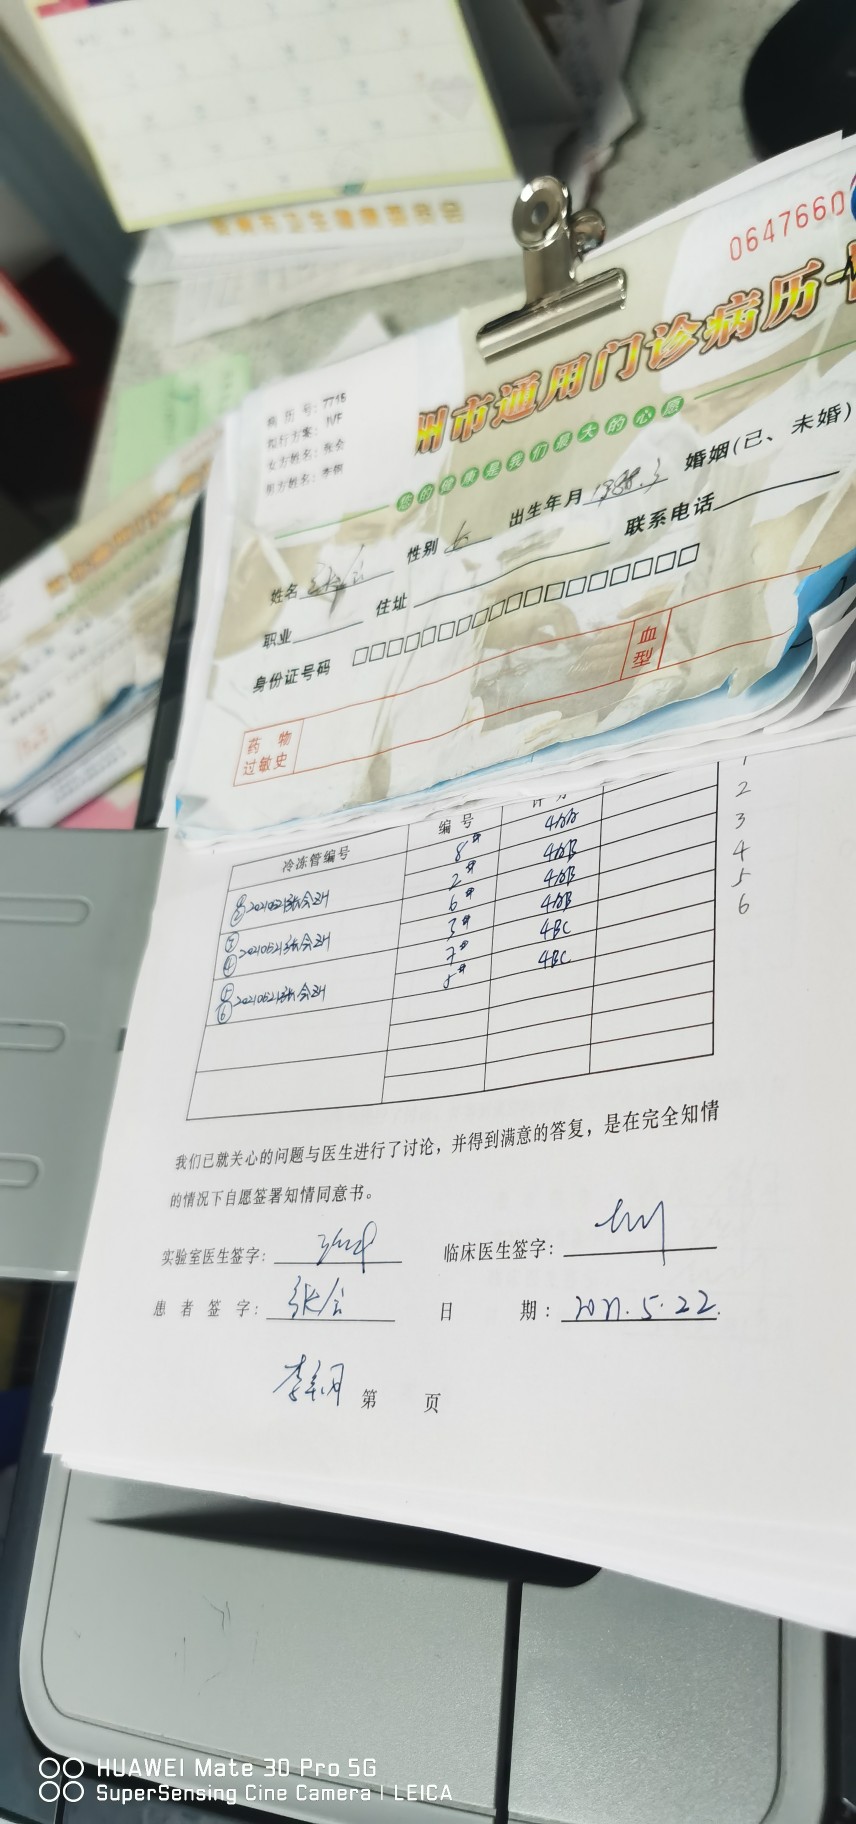 0647660
州市通用门诊病历
您的健康是我们最大的心愿
病历号: 7715
拟行方案: IVF
女方姓名: 张会
男方姓名: 李钢
姓名 张会 性别 女 出生年月 1988.3 婚姻(已、未婚)
职业 住址 联系电话
身份证号码 □□□□□□□□□□□□□□□□□□
血型
药物
过敏史
冷冻管编号 编号
8# 4AA 1
2# 4AB 2
6# 4AB 3
3# 4AB 4
7# 4BC 5
5# 4BC 6
① ② 20210521张会ZH
③ ④ 20210521张会ZH
⑤ ⑥ 20210521张会ZH
我们已就关心的问题与医生进行了讨论，并得到满意的答复，是在完全知情
的情况下自愿签署知情同意书。
实验室医生签字: 临床医生签字:
患者签字: 张会 日期: 2021.5.22.
李钢
第 页
HUAWEI Mate 30 Pro 5G
SuperSensing Cine Camera | LEICA